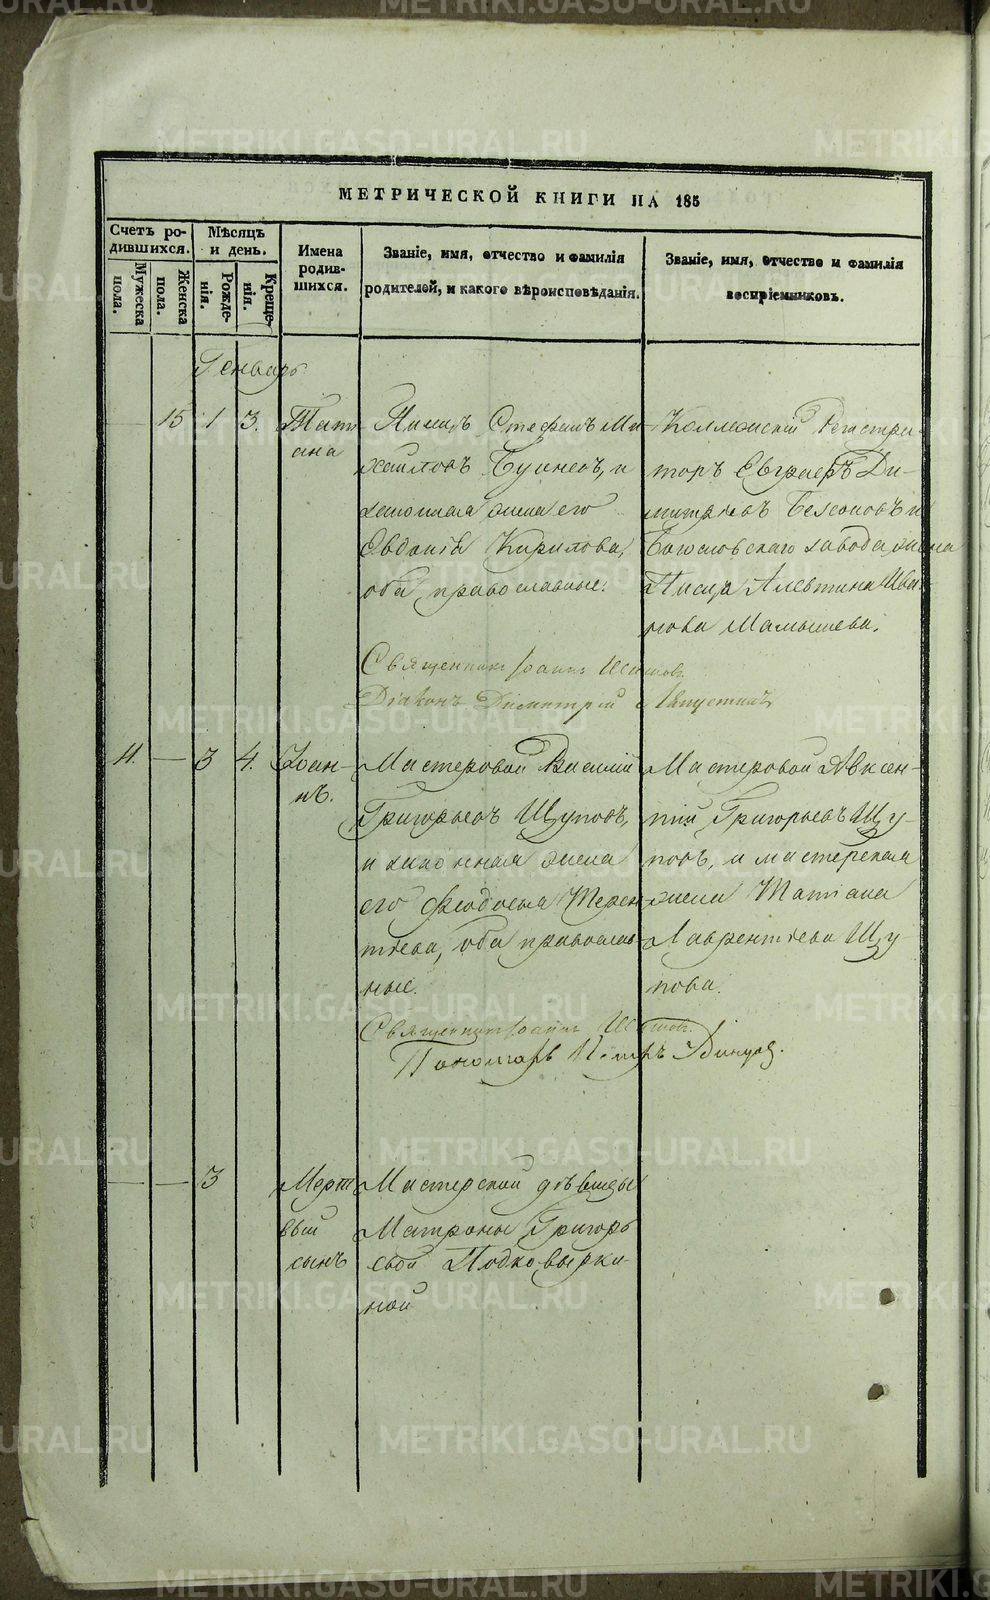 МЕТРИЧЕСКОЙ КНИГИ НА 185
Счетъ ро-
дившихся.
Мужеска
пола.
Женска
пола.
Мѣсяцъ
и день.
Рожде-
нія.
Креще-
нія.
Имена
родив-
шихся.
Званіе, имя, отчество и фамилія
родителей, и какого вѣроисповѣданія.
Званіе, имя, отчество и фамилія
воспріемниковъ.
Генварь
15 1 3. Тать
яна
Стефанъ Ми
хайловъ и
законная жена его
Евдокія Кирилова,
оба православные.
Коллежскій Регистра-
торъ Евграфъ Ди-
митріевъ и
Богословскаго завода жена
Писца Алевтина Ива-
нова Мамышева.
Священникъ Іоаннъ
Діаконъ Димитрій
4. — 3 4. Іоан-
нъ.
Мастеровой Василій
Григорьевъ Щуповъ,
и законная жена
его Феодосья Терен
тьева, оба православ
ные.
Мастеровой Авксен-
тій Григорьевъ Щу-
повъ, и мастерская
жена Татіана
Лаврентьева Щу
пова.
Священникъ Іоаннъ
Пономарь Петръ
— — 3 Мерт
вый
сынъ
Мастерской дѣвицы
Матроны Григорь
евой Подковырки-
ной
METRIKI.GASO-URAL.RU